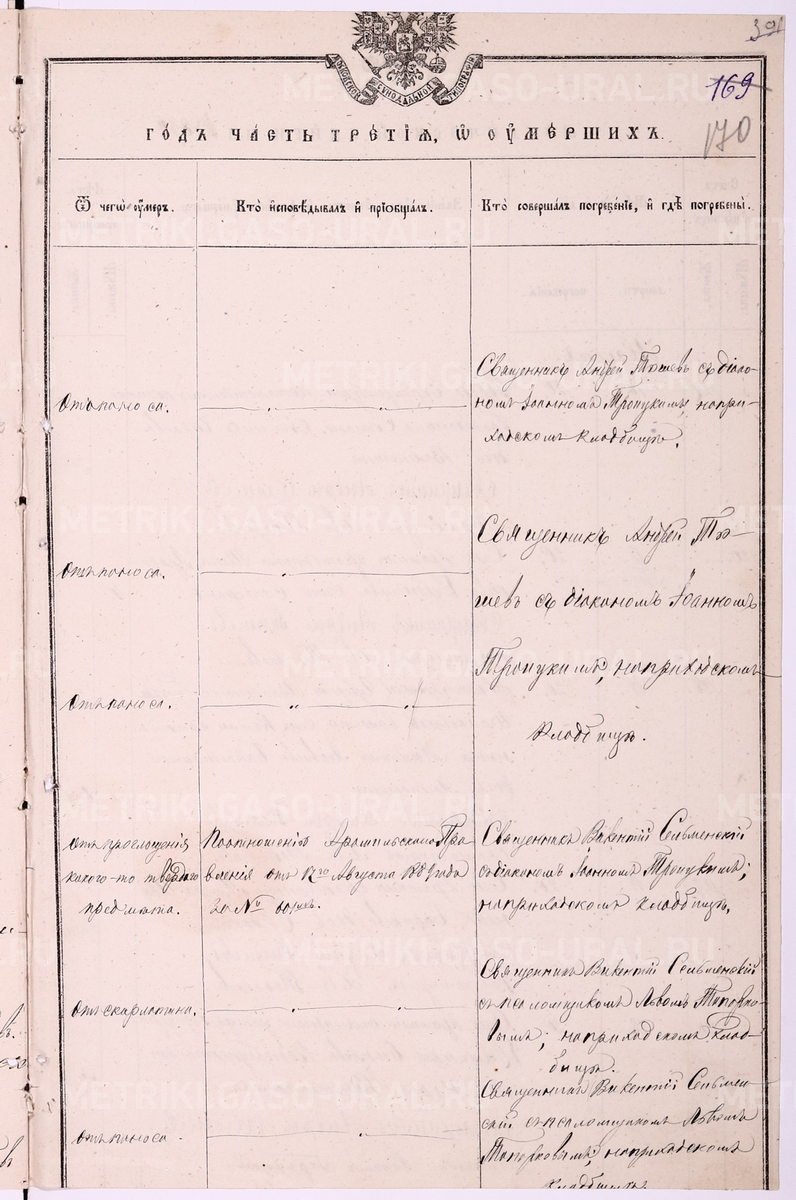 301
169
170
МОСКОВСКОЙ СѴНОДАЛЬНОЙ ТИПОГРАФІИ
ГОДЪ ЧАСТЬ ТРЕТІЯ, Ѡ ОУМЕРШИХЪ.
Ѿ чегѡ оумеръ.
Кто исповѣдывалъ и пріобщалъ.
Кто совершалъ погребеніе, и гдѣ погребены.
Отъ поноса.
Священникъ Андрей Тюшевъ съ діако-
номъ Іоанномъ Тронукимъ на при-
ходскомъ кладбищѣ.
Отъ поноса.
Священникъ Андрей Тю-
шевъ съ діакономъ Іоанномъ
Тронукимъ, на приходскомъ
кладбищѣ.
Отъ поноса.
Отъ проглощенія
какого-то твердаго
предмѣта.
По отношенію Арамильскаго Пра-
вленія отъ 12го Августа 1889 года
за №
Священникъ Викентій Сельменскій
съ діакономъ Іоанномъ Тронукимъ;
на приходскомъ кладбищѣ.
Отъ скарлатины.
Священникъ Викентій Сельменскій
съ псаломщикомъ Львомъ Топорко-
вымъ; на приходскомъ клад-
бищѣ.
Отъ поноса
Священникъ Викентій Сельмен-
скій съ псаломщикомъ Львомъ
Топорковымъ; на приходскомъ
кладбищѣ.
METRIKI.GASO-URAL.RU